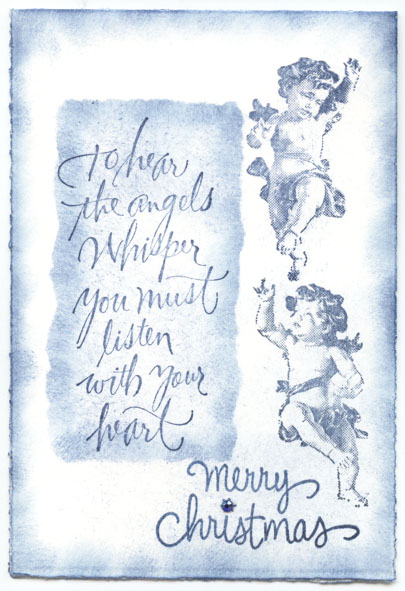 To hear
the angels
Whisper
you must
listen
with your
heart
merry
Christmas